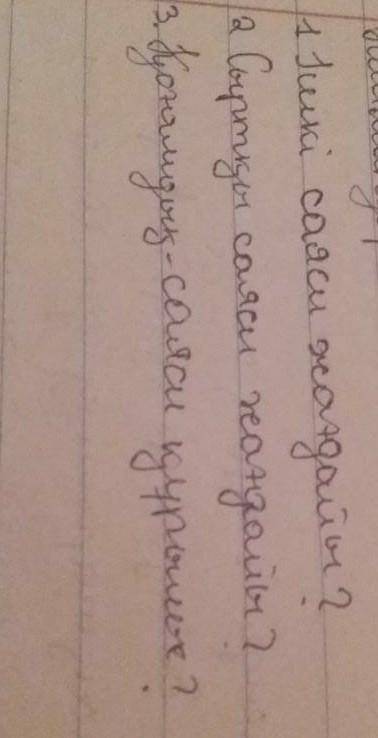 1 Ішкі саяси жағдайы?
2 Сыртқы саяси жағдайы?
3. Қоғамдық-саяси құрылыс?